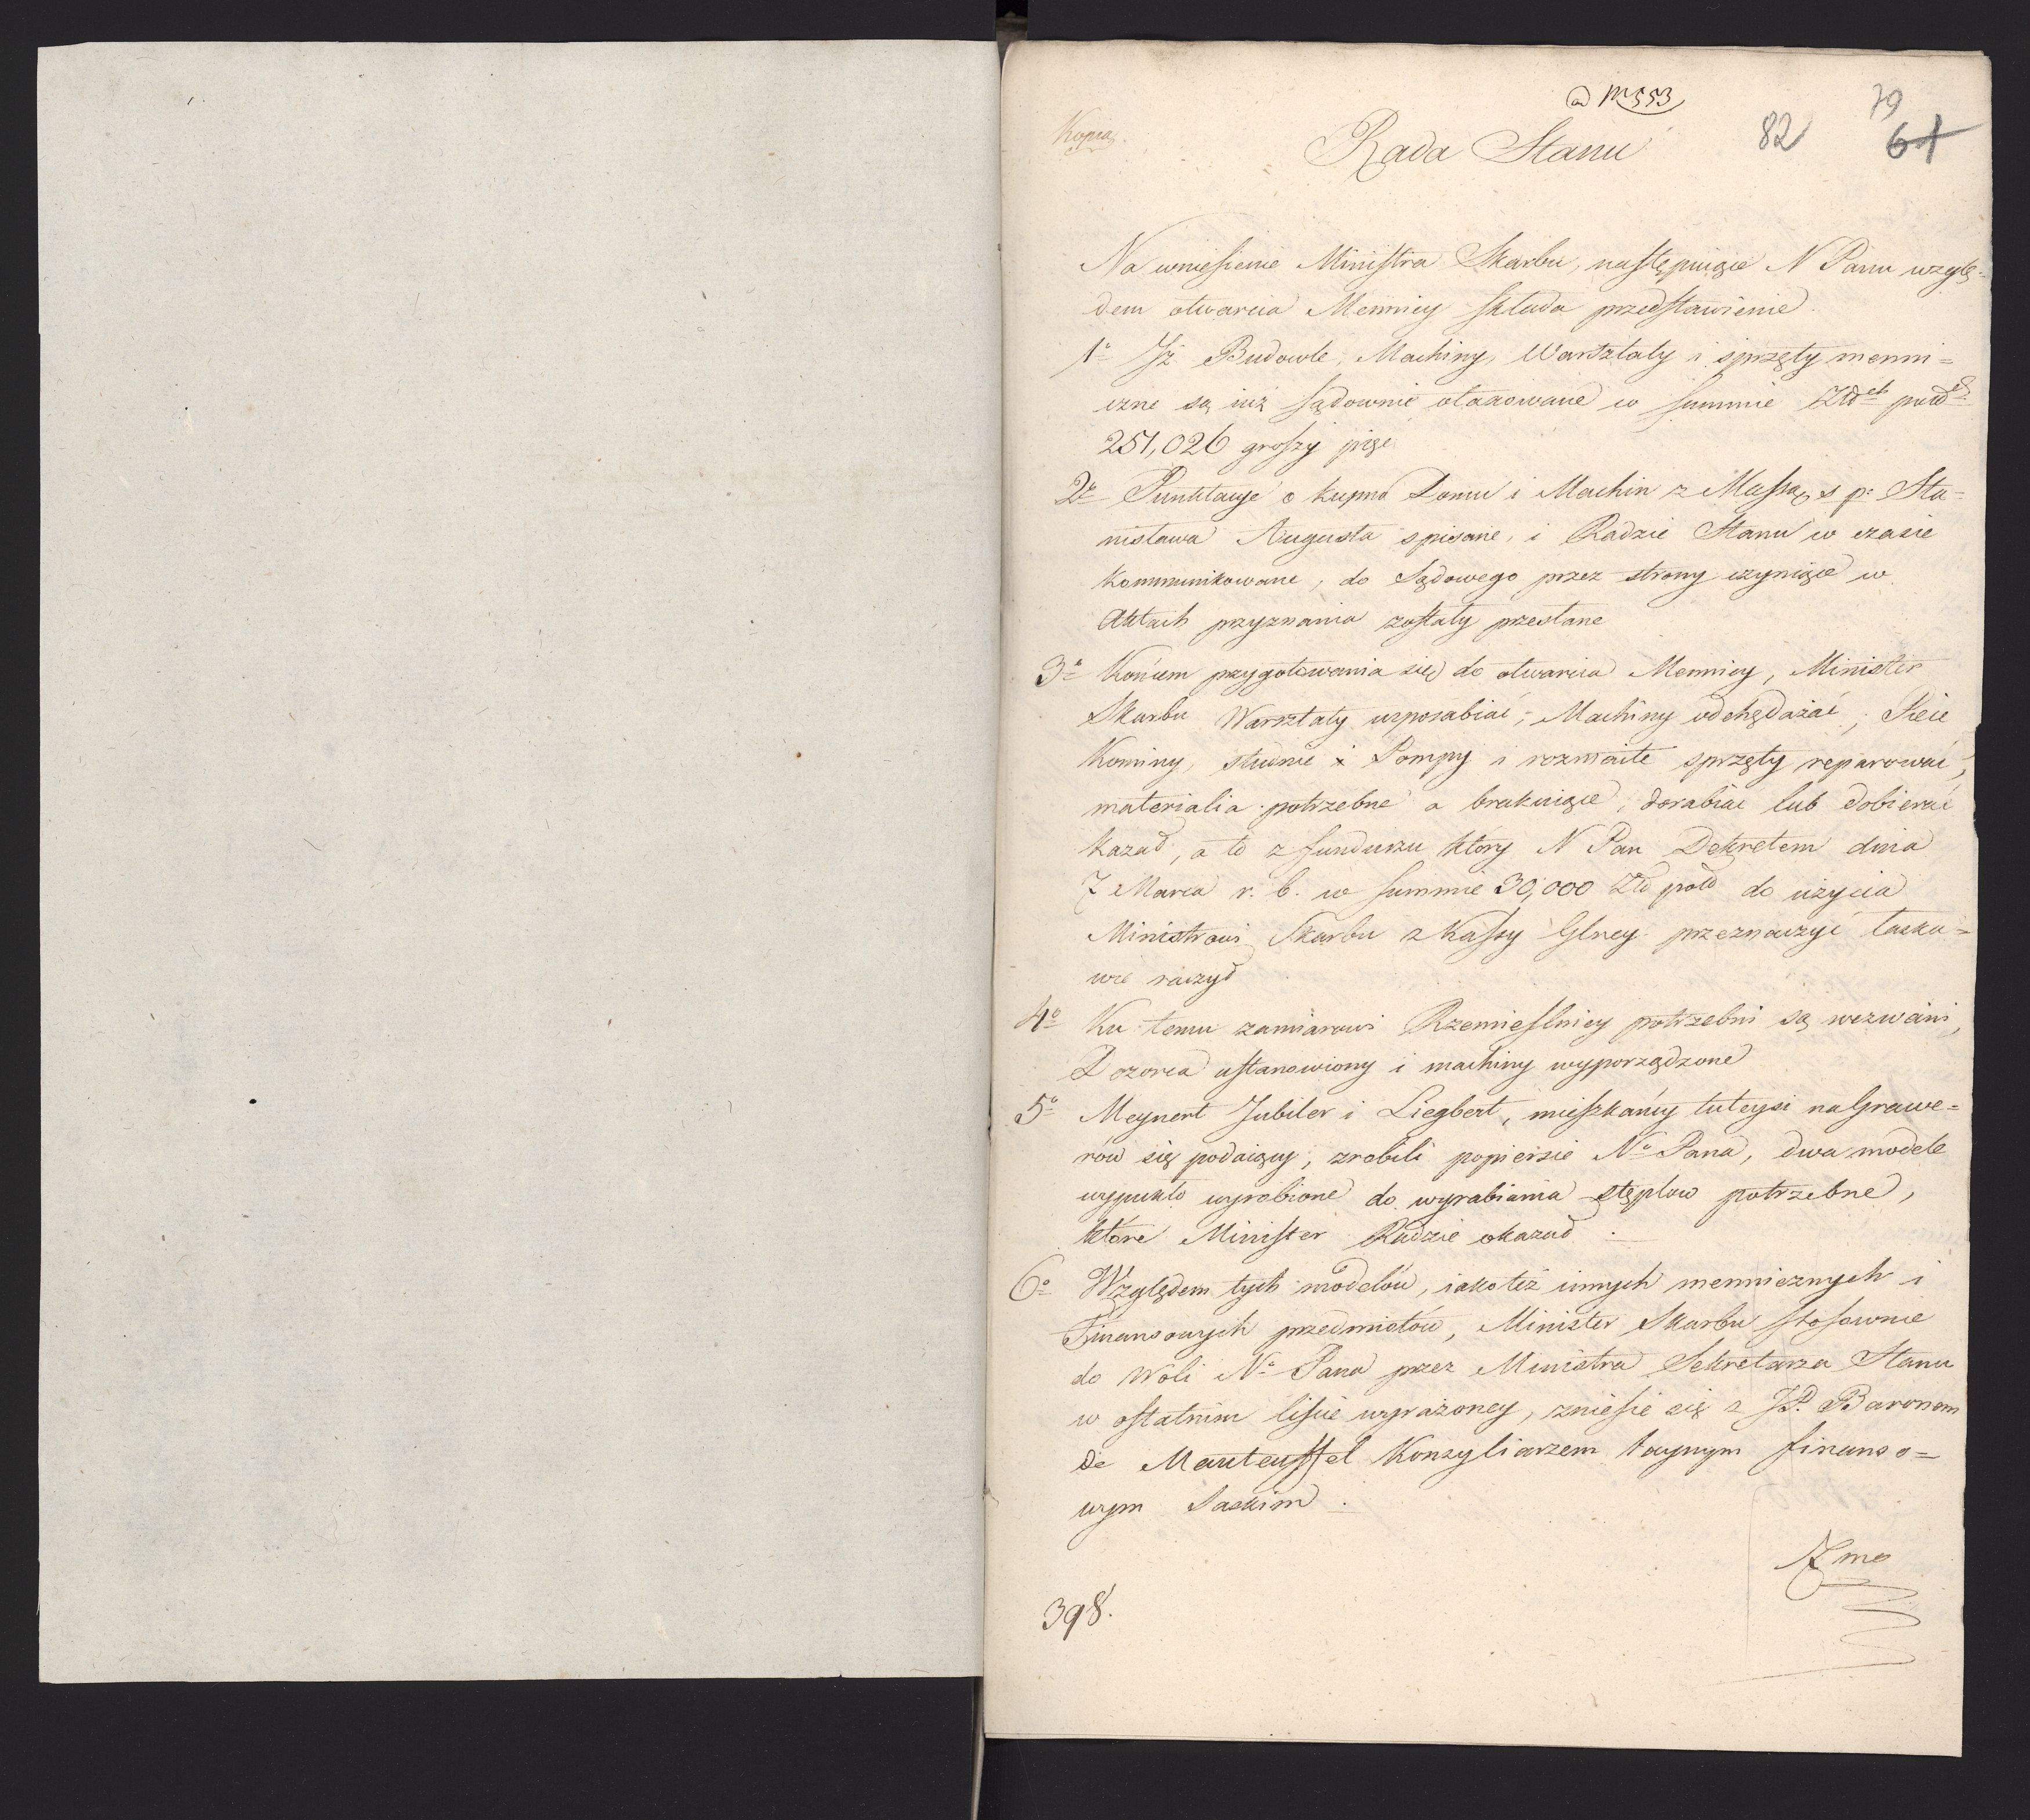 ad N 553
Kopia.
Rada Stanu
82
79
61
Na wniesienie Ministra Skarbu, następuiące N Panu wzglę=
dem otwarcia Mennicy składa przedstawienie.
1º Iż Budowle, Machiny, Warsztaty i sprzęty menni=
czne są iuż sądownie otaxowane w summie
251,026 groszy pięć
2º Punktacye o kupno Domu i Machin z Massą s p: Sta=
nisława Augusta spisane, i Radzie Stanu w czasie
kommunikowane, do Sądowego przez strony czyniące w
Aktach przyznania zostały przesłane
3º Końcem przygotowania się do otwarcia Mennicy, Minister
Skarbu Warsztaty usposabiać, Machiny ochędażać, Piece
Kominy, studnie i Pompy i rozmaite sprzęty reparować,
materialia potrzebne a brakuiące, dorabiać lub dobierać
kazał, a to z funduszu który N Pan Dekretem dnia
7 Marca r. b. w summie 30,000 Zło pol do użycia
Ministrowi Skarbu z Kassy Glney przeznaczyć łaska=
wie raczył
4º Ku temu zamiarowi Rzemieślnicy potrzebni są wezwani,
Dozorca ustanowiony i machiny wyporządzone
5º Meynert Jubiler i Liegbert, mieszkańcy tuteysi na Grawe=
rów się podaiący, zrobili popiersie Nº Pana, dwa modele
wypukło wyrobione do wyrabiania stęplow potrzebne,
które Minister Radzie okazał.
6º Względem tych modelów, iako też innych menniczych i
Finansowych przedmiotów, Minister Skarbu stosownie
do Woli Nº Pana przez Ministra Sekretarza Stanu
w ostatnim liście wyrażoney, zniesie się z JP. Baronem
de Manteuffel Konsyliarzem taynym finanso=
wym Saskim.
398.